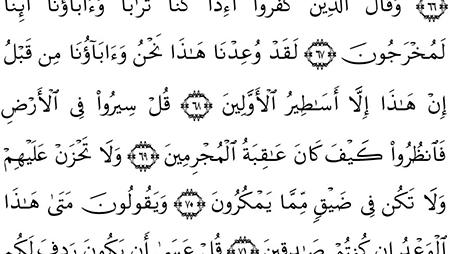 ﴿٦٦﴾ وَقَالَ الَّذِينَ كَفَرُوا أَءِذَا كُنَّا تُرَابًا وَءَابَاؤُنَا أَئِنَّا
لَمُخْرَجُونَ ﴿٦٧﴾ لَقَدْ وُعِدْنَا هَـٰذَا نَحْنُ وَءَابَاؤُنَا مِن قَبْلُ
إِنْ هَـٰذَا إِلَّا أَسَـٰطِيرُ الْأَوَّلِينَ ﴿٦٨﴾ قُلْ سِيرُوا۟ فِى الْأَرْضِ
فَٱنظُرُوا۟ كَيْفَ كَانَ عَـٰقِبَةُ الْمُجْرِمِينَ ﴿٦٩﴾ وَلَا تَحْزَنْ عَلَيْهِمْ
وَلَا تَكُن فِى ضَيْقٍ مِّمَّا يَمْكُرُونَ ﴿٧٠﴾ وَيَقُولُونَ مَتَىٰ هَـٰذَا
الْوَعْدُ إِن كُنتُمْ صَـٰدِقِينَ ﴿٧١﴾ قُلْ عَسَىٰ أَن يَكُونَ رَدِفَ لَكُم